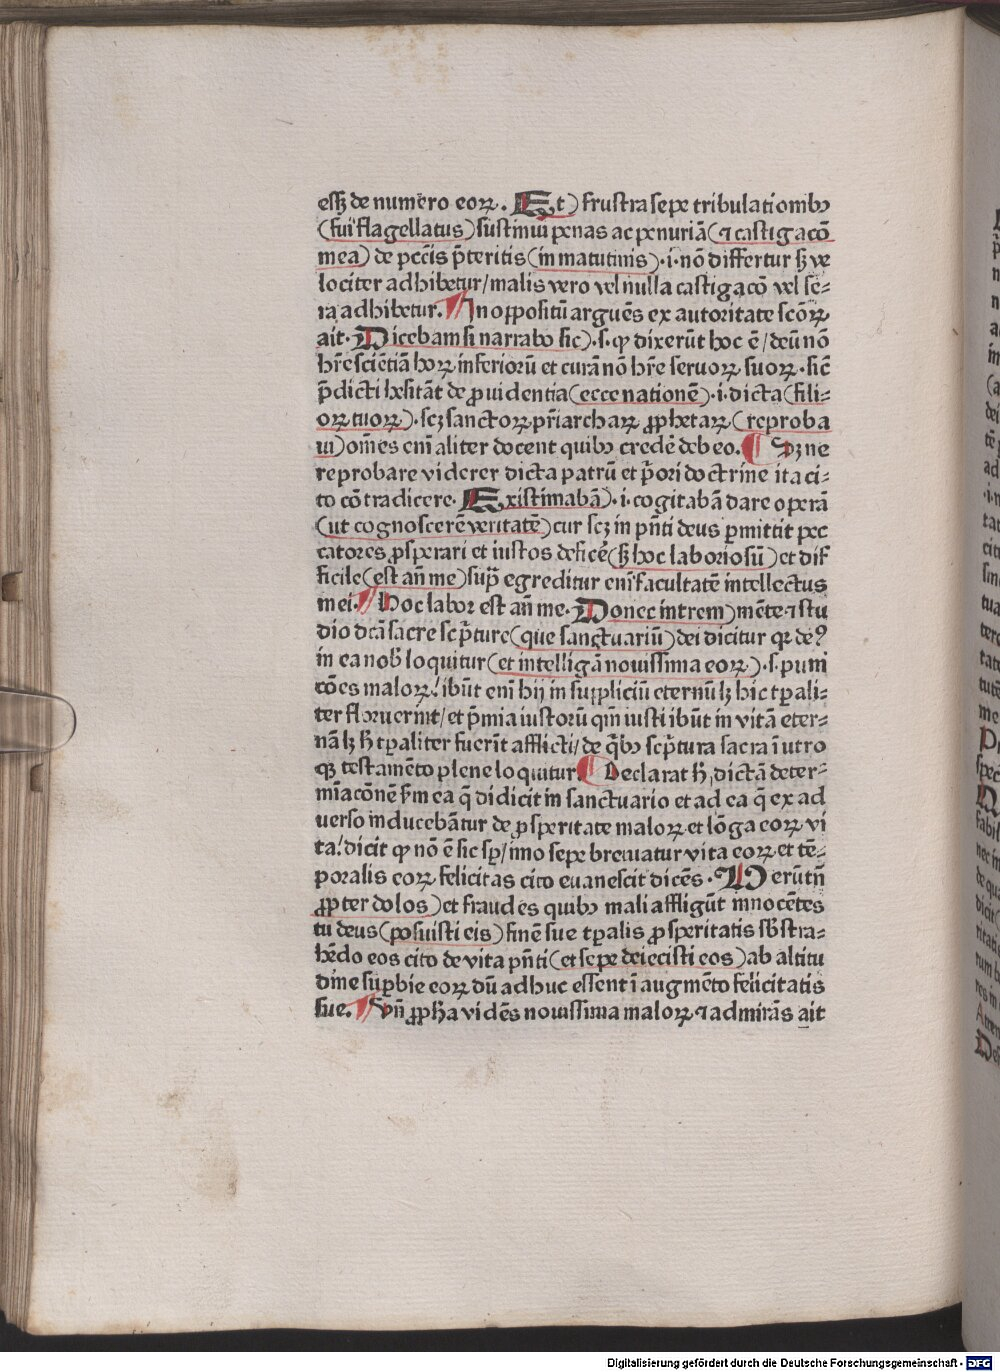 essꝫ de numero eoꝝ. Et) frustra sepe tribulatiōibꝯ
(fui flagellatus) sustinui penas ac penuriā (⁊ castigacō
mea) de pctīs p̄teritis (in matutinis).i. nō differtur sꝫ ve
lociter adhibetur/ malis vero vel nulla castigacō vel se-
ra adhibetur. In oppositū arguēs ex autoritate scōꝝ
ait. Dicebam si narrabo sic).s. ꝙ dixerūt hoc ē/ deū nō
hr̄e sciētiā hoꝝ inferiorū et curā nō hr̄e seruoꝝ suoꝝ. sic̄
p̄dicti hesitāt de ꝓuidentia (ecce nationē).i. dicta (fili-
oꝝ tuoꝝ). scꝫ sanctoꝝ pr̄iarchaꝝ ꝓphetaꝝ (reproba
ui) om̄es em̄ aliter docent quibꝯ credē debeo. Sꝫ ne
reprobare viderer dicta patrū et p̄ori doctrine ita ci-
to cōtradicere. Existimabā).i. cogitabā dare operā
(ut cognoscerē veritatē) cur scꝫ in pn̄ti deus ꝑmittit pec
catores ꝓsperari et iustos deficē (sꝫ hoc laboriosū) et dif
ficile (est an̄ me) sup̄ egreditur em̄ facultatē intellectus
mei. Hoc labor est an̄ me. Donec intrem) mēte ⁊ stu
dio dcā sacre scp̄ture (que sanctuariū) dei dicitur qꝛ de?
in ea nob̄ loquitur (et intelligā nouissima eoꝝ).s. puni
cōes maloꝝ! ibūt em̄ hij in supliciū eternū lꝫ hic tꝑali-
ter floruerint/ et p̄mia iustorū qm̄ iusti ibūt in vitā eter-
nā lꝫ h̄ tꝑaliter fuerīt afflicti/ de q̄bꝯ scp̄tura sacra ī utro
qꝫ testamēto plene loquitur. Declarat h̄, dictā deter-
miacōnē scd̄m ea q̄ didicit in sanctuario et ad ea q̄ ex ad
uerso inducebātur de ꝓsperitate maloꝝ et lōga eoꝝ vi
ta! dicit ꝙ nō ē sic sp̄/ imo sepe breuiatur vita eoꝝ et tē-
poralis eoꝝ felicitas cito euanescit dicēs. Uerūtn̄
ꝓpter dolos) et fraudes quibꝯ mali affligūt innocētes
tu deus (posuisti eis) finē sue tꝑalis ꝓsperitatis sb̄stra-
hēdo eos cito de vita pn̄ti (et sepe deiecisti eos) ab altitu
dine suꝑbie eoꝝ dū adhuc essent ī augmēto felicitatis
sue. Vn̄ ꝓpħa vidēs nouissima maloꝝ ⁊ admirās ait
Digitalisierung gefördert durch die Deutsche Forschungsgemeinschaft - DFG